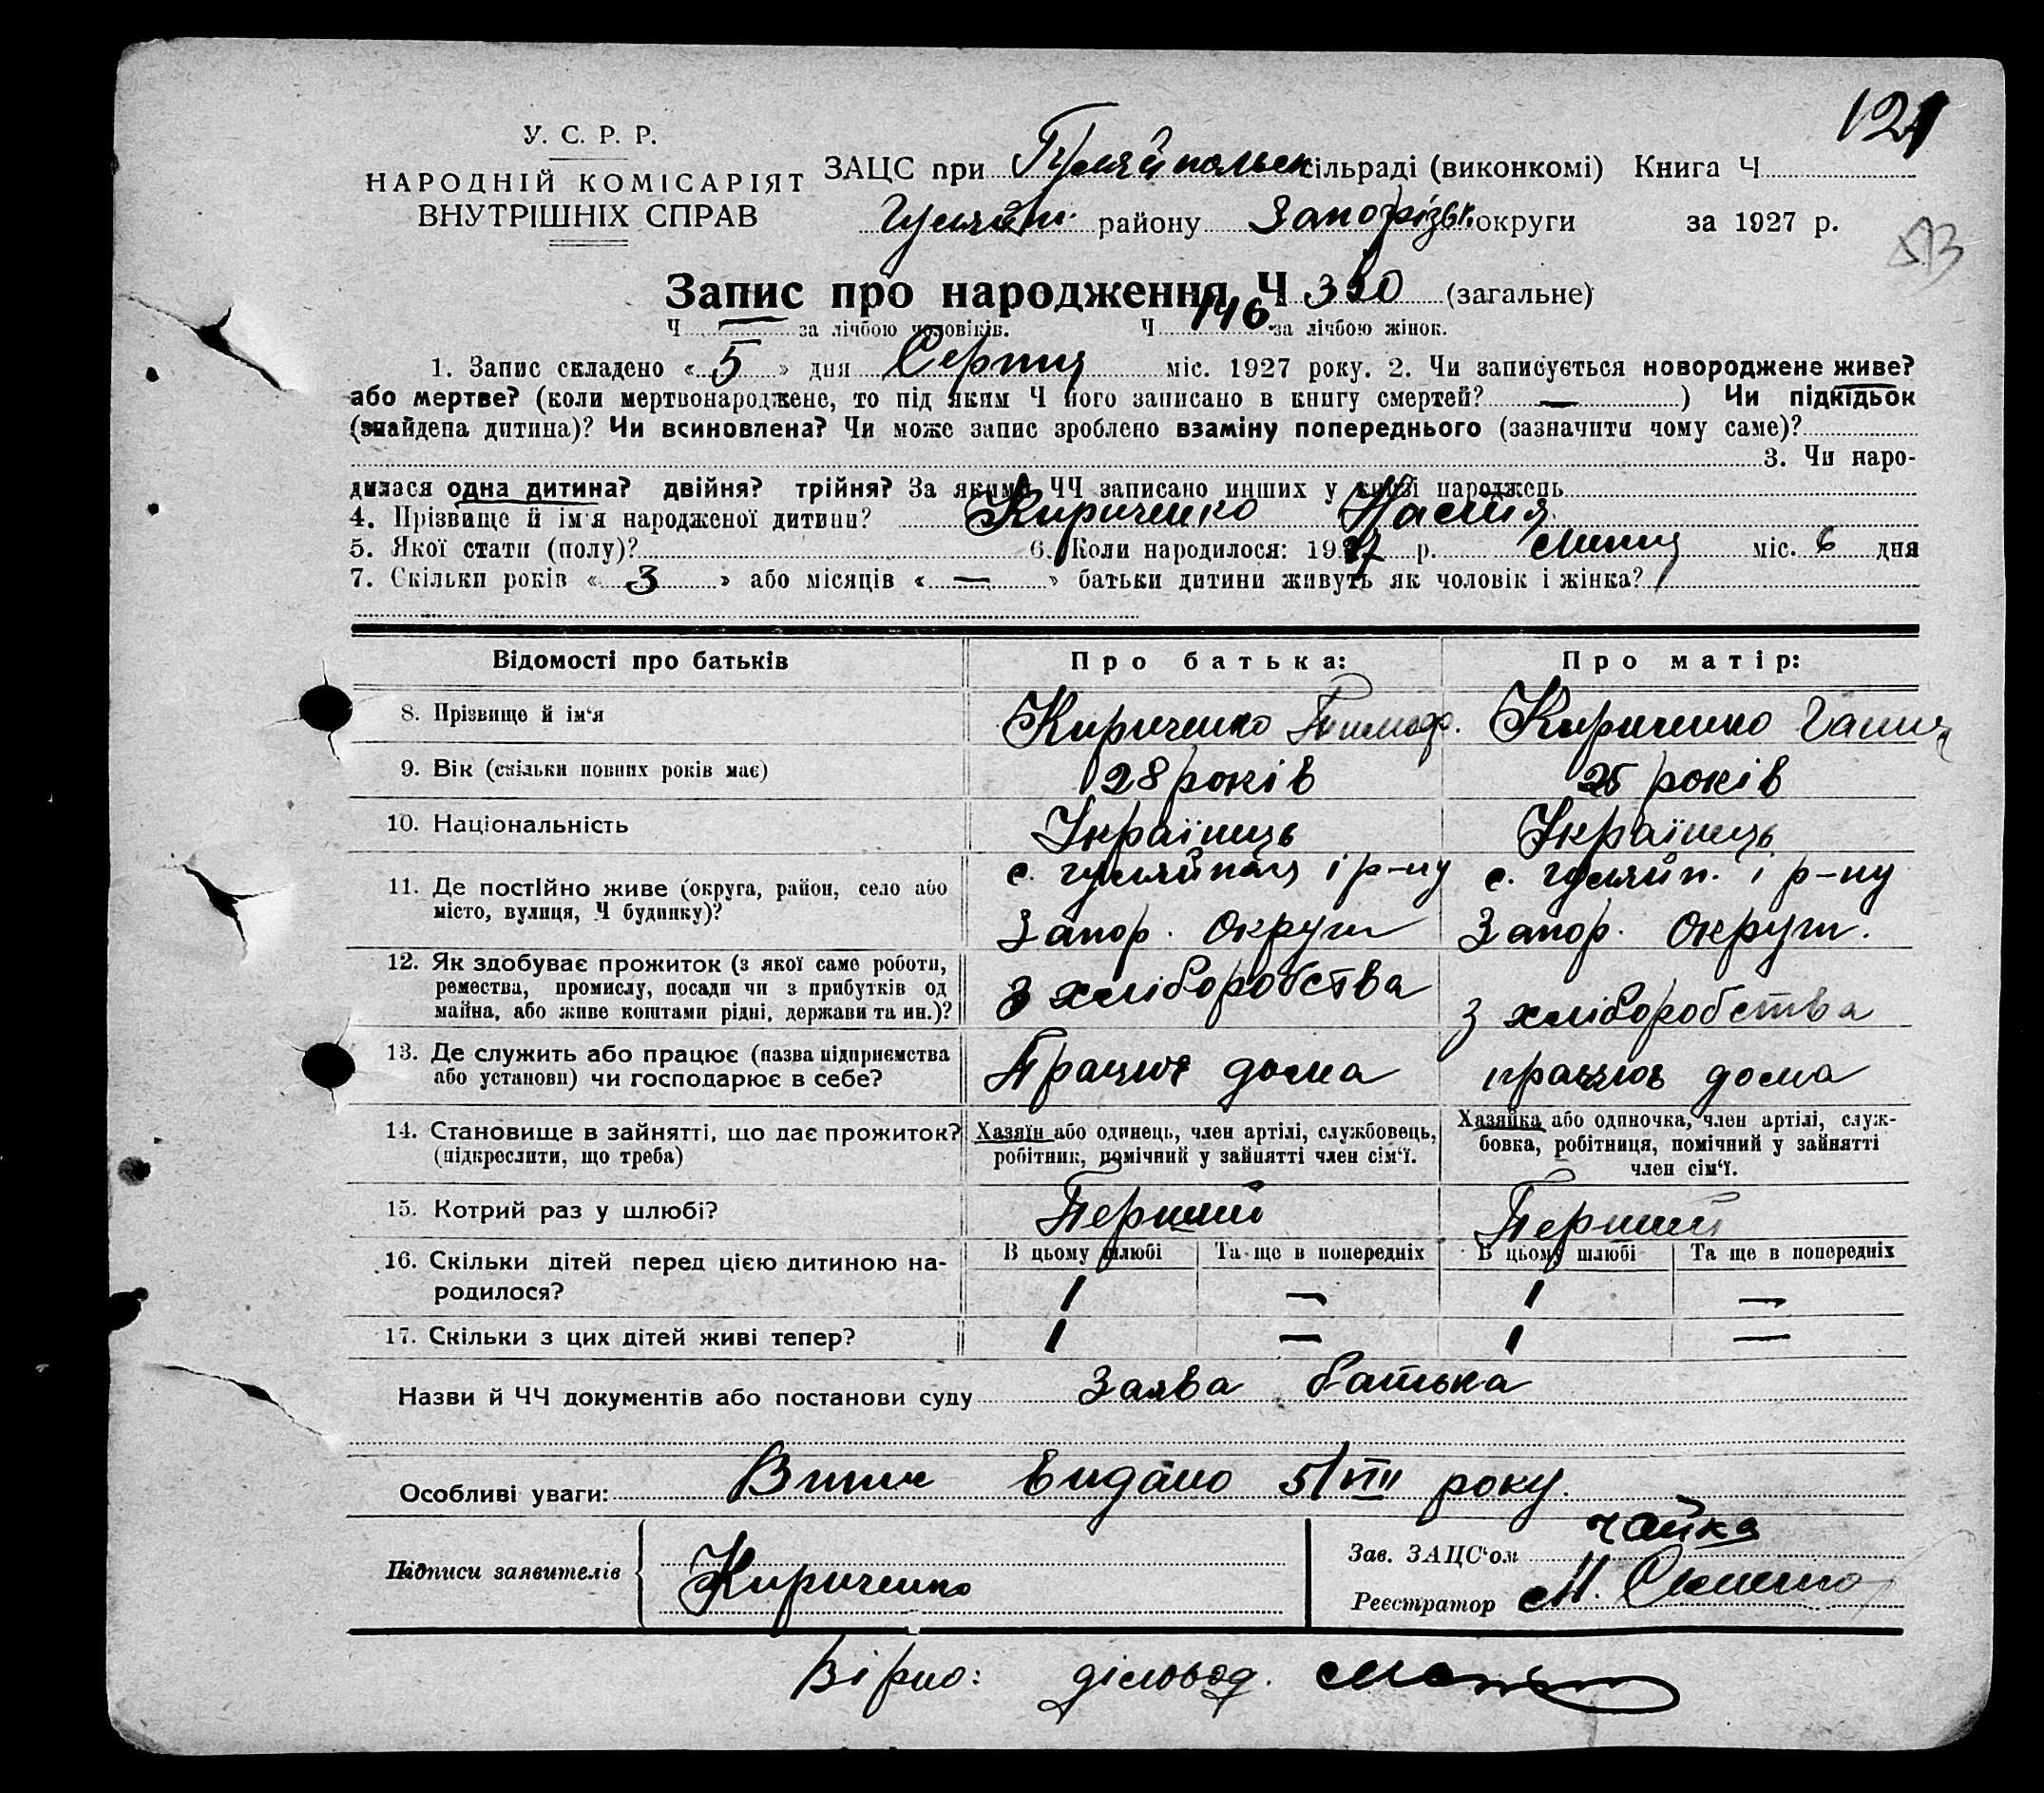 121
У. С. Р. Р.
НАРОДНІЙ КОМІСАРІЯТ
ВНУТРІШНІХ СПРАВ
ЗАЦС при Гуляйпольск сільраді (виконкомі) Книга Ч
Гуляйп. району Запорізьк. округи за 1927 р.
Запис про народження Ч 350 (загальне)
Ч — за лічбою чоловіків. Ч 146 за лічбою жінок.
1. Запис складено « 5 » дня Серпня міс. 1927 року. 2. Чи записується новороджене живе?
або мертве? (коли мертвонароджене, то під яким Ч його записано в книгу смертей? — ) Чи підкідьок
(знайдена дитина)? Чи всиновлена? Чи може запис зроблено взаміну попереднього (зазначити чому саме)?
3. Чи наро-
дилася одна дитина? двійня? трійня? За якими ЧЧ записано инших у книзі народжень
4. Прізвище й ім'я народженої дитини? Кириченко Настя
5. Якої стати (полу)? 6. Коли народилося: 1927 р. липня міс. 6 дня
7. Скільки років « 3 » або місяців « — » батьки дитини живуть як чоловік і жінка?
Відомості про батьків Про батька: Про матір:
8. Прізвище й ім'я Кириченко Тимоф. Кириченко Ганна
9. Вік (скільки повних років має) 28 років 25 років
10. Національність Українець Українець
11. Де постійно живе (округа, район, село або
місто, вулиця, Ч будинку)?
с. гуляйполя і р-ну
Запор. Округи
с. гуляйп. і р-ну
Запор. Округи.
12. Як здобуває прожиток (з якої саме роботи,
ремества, промислу, посади чи з прибутків од
майна, або живе коштами рідні, держави та ин.)?
З хліборобства
з хліборобства
13. Де служить або працює (назва підприємства
або установи) чи господарює в себе?
Працює дома
працює дома
14. Становище в зайнятті, що дає прожиток?
(підкреслити, що треба)
Хазяїн або одинець, член артілі, службовець,
робітник, помічний у зайнятті член сім'ї.
Хазяйка або одиночка, член артілі, служ-
бовка, робітниця, помічний у зайнятті
член сім'ї.
15. Котрий раз у шлюбі? Перший Перший
16. Скільки дітей перед цією дитиною на-
родилося?
В цьому шлюбі Та ще в попередніх В цьому шлюбі Та ще в попередніх
1 — 1 —
17. Скільки з цих дітей живі тепер? 1 — 1 —
Назви й ЧЧ документів або постанови суду Заява батька
Особливі уваги: Витяг видано 5/VIII року.
Підписи заявителів Кириченко
Зав. ЗАЦС'ом Чайка
Реєстратор М.
Вірно: діловод.